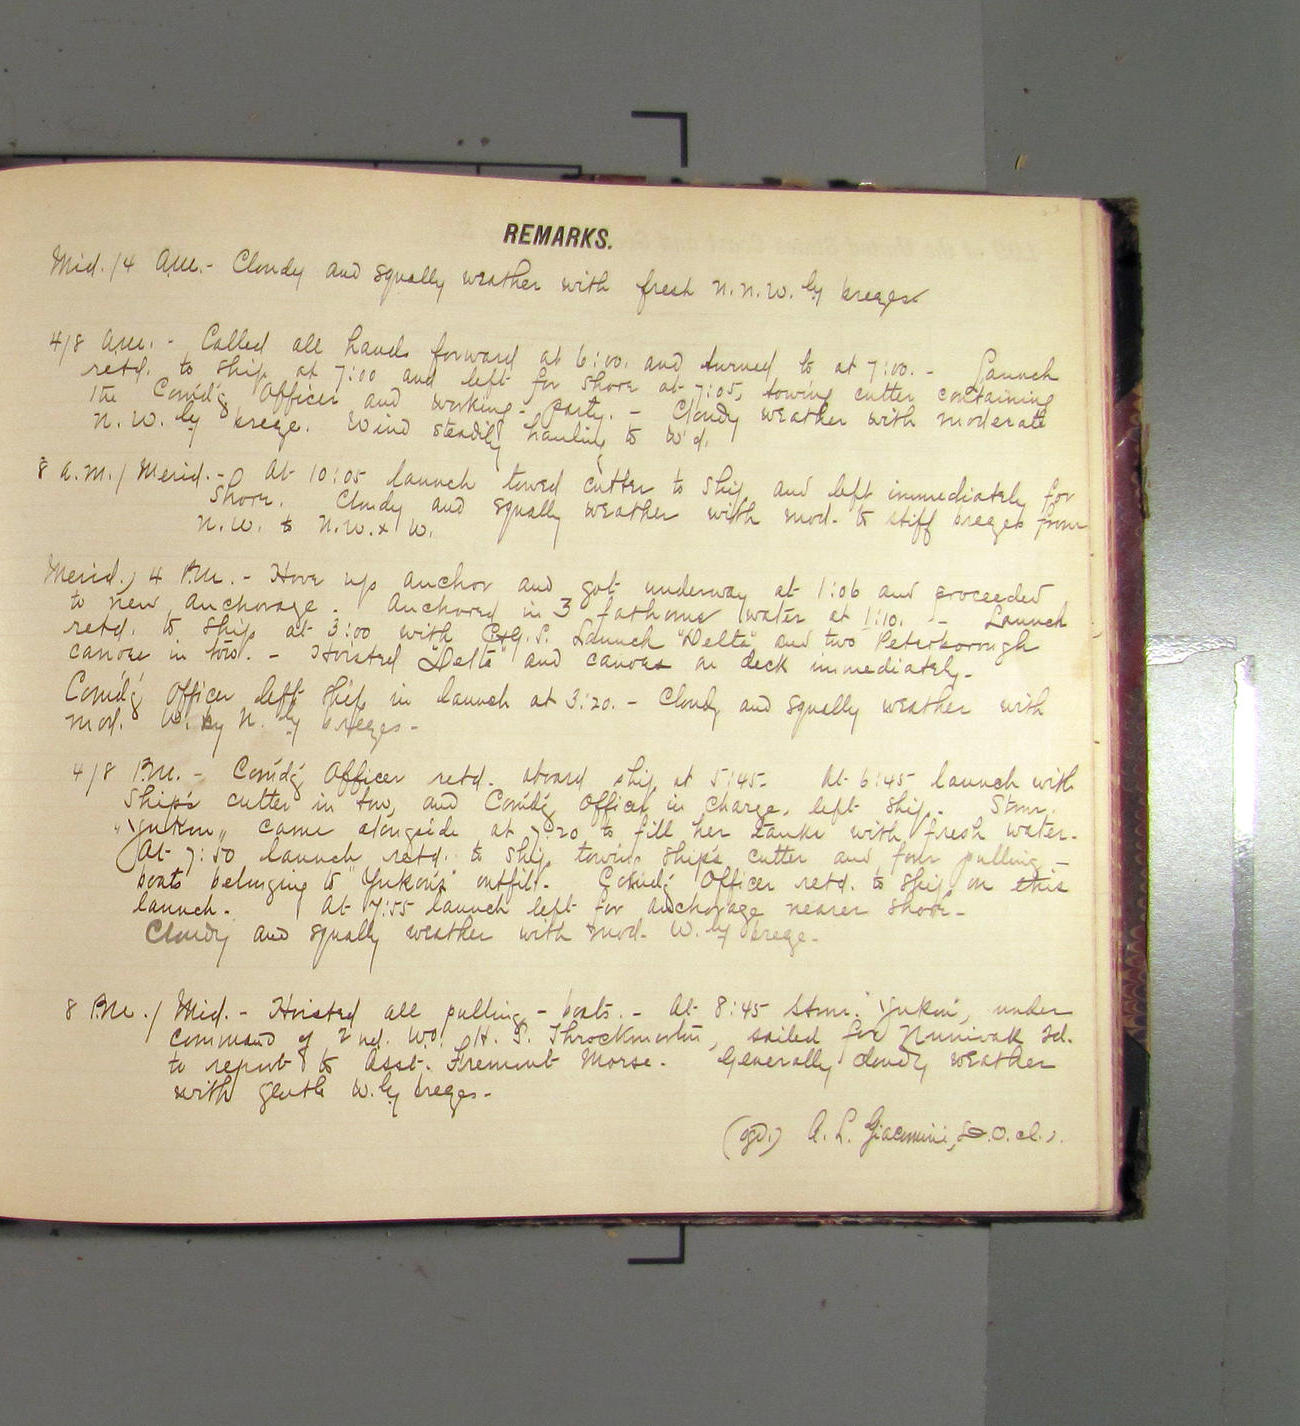 REMARKS.
Mid./4 A.M. - Cloudy and squally weather with fresh N.N.W.'ly breezes
4/8 A.M. - Called all hands forward at 6:00. and turned to at 7:00. - Launch
retd. to ship at 7:00 and left for shore at 7:05, towing cutter containing
the Com'd'g Officer and working-party. - Cloudy weather with moderate
N.W.'ly breeze. Wind steadily hauling to W'd.
8 A.M./Merid. - At 10:05 launch towed cutter to ship and left immediately for
shore. Cloudy and squally weather with mod. to stiff breezes from
N.W. to N.W. x W.
Merid./4 P.M. - Hove up anchor and got underway at 1:06 and proceeded
to new anchorage. Anchored in 3 fathoms water at 1:10. - Launch
retd. to ship at 3:00 with C&G.S. Launch "Delta" and two Peterborough
canoes in tow. - Hoisted "Delta" and canoes on deck immediately. -
Com'd'g Officer left ship in launch at 3:20. - Cloudy and squally weather with
mod. W. by N.'ly breezes. -
4/8 P.M. - Com'd'g Officer retd. aboard ship at 5:45. At 6:45 launch with
ship's cutter in tow, and Com'd'g Officer in charge, left ship. Stmr.
"Yukon" came alongside at 7:20 to fill her tanks with fresh water.
At 7:50 launch retd. to ship towing ship's cutter and four pulling-
boats belonging to "Yukon's" outfit. Com'd'g Officer retd. to ship on this
launch. At 7:55 launch left for anchorage nearer shore. -
Cloudy and squally weather with mod. W.'ly breeze. -
8 P.M./Mid. - Hoisted all pulling-boats. - At 8:45 Stmr. "Yukon", under
command of 2nd. W.O. H. S. Throckmorton, sailed for Nunivak Id.
to report to Asst. Fremont Morse. - Generally cloudy weather
with gentle W.'ly breezes. -
(gd.) A. L. Giacomini,